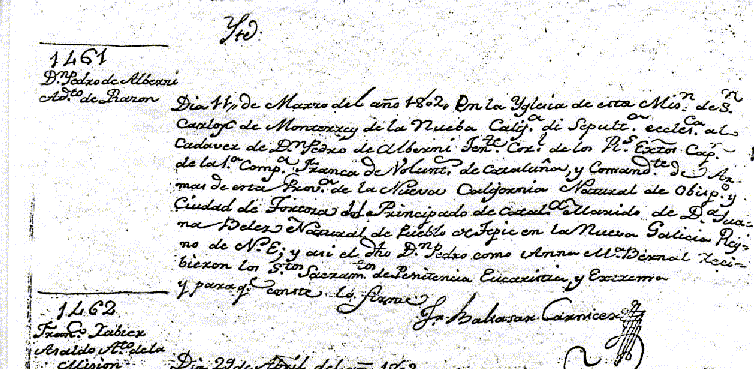 Ytd.
1461
Dn. Pedro de Alberni
Adto. de Razon
Dia 11,, de Marzo del año 1802, En la Yglecia de esta Misn. de Sn.
Carlos de Monterrey de la Nueba Califa. di Sepulta. ecclesca. al
Cadaver de Dn. Pedro de Alberni Tente. Corl. de los Rs. Extos. Capn.
de la 1a. Compa. Franca de Volunts. de Cataluña, y Comandte. de Ar-
mas de esta Prova. de la Nueva California Natural de Obispo. y
Ciudad de Tortosa del Principado de Catala. Marido de Da. Jua-
na Velez Natural de Pueblo de Tepic en la Nueva Galicia Rey-
no de N. E; y asi el dho Dn. Pedro como Anna Ma. Bernal reci-
bieron los Stos. Sacramtos. de Penitencia Eucaristia, y Extrema
y para q. conste lo firme
Fr. Baltasar Carnicer
1462
Franco. Xabier
Ato. de la
Mision
Dia 29 de Abril del año